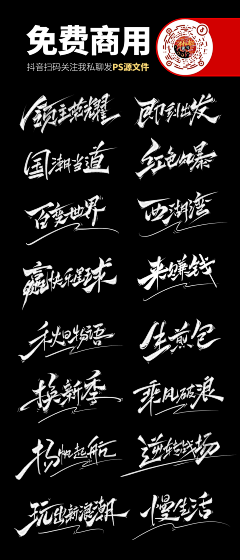 免费商用
抖音扫码关注我私聊发PS源文件
领主荣耀
即刻出发
国潮当道
红色风暴
百变世界
西湖湾
赢快乐星球
来赚钱
秋日物语
生煎包
换新季
乘风破浪
扬帆起航
逆转战场
玩出新浪潮
慢生活